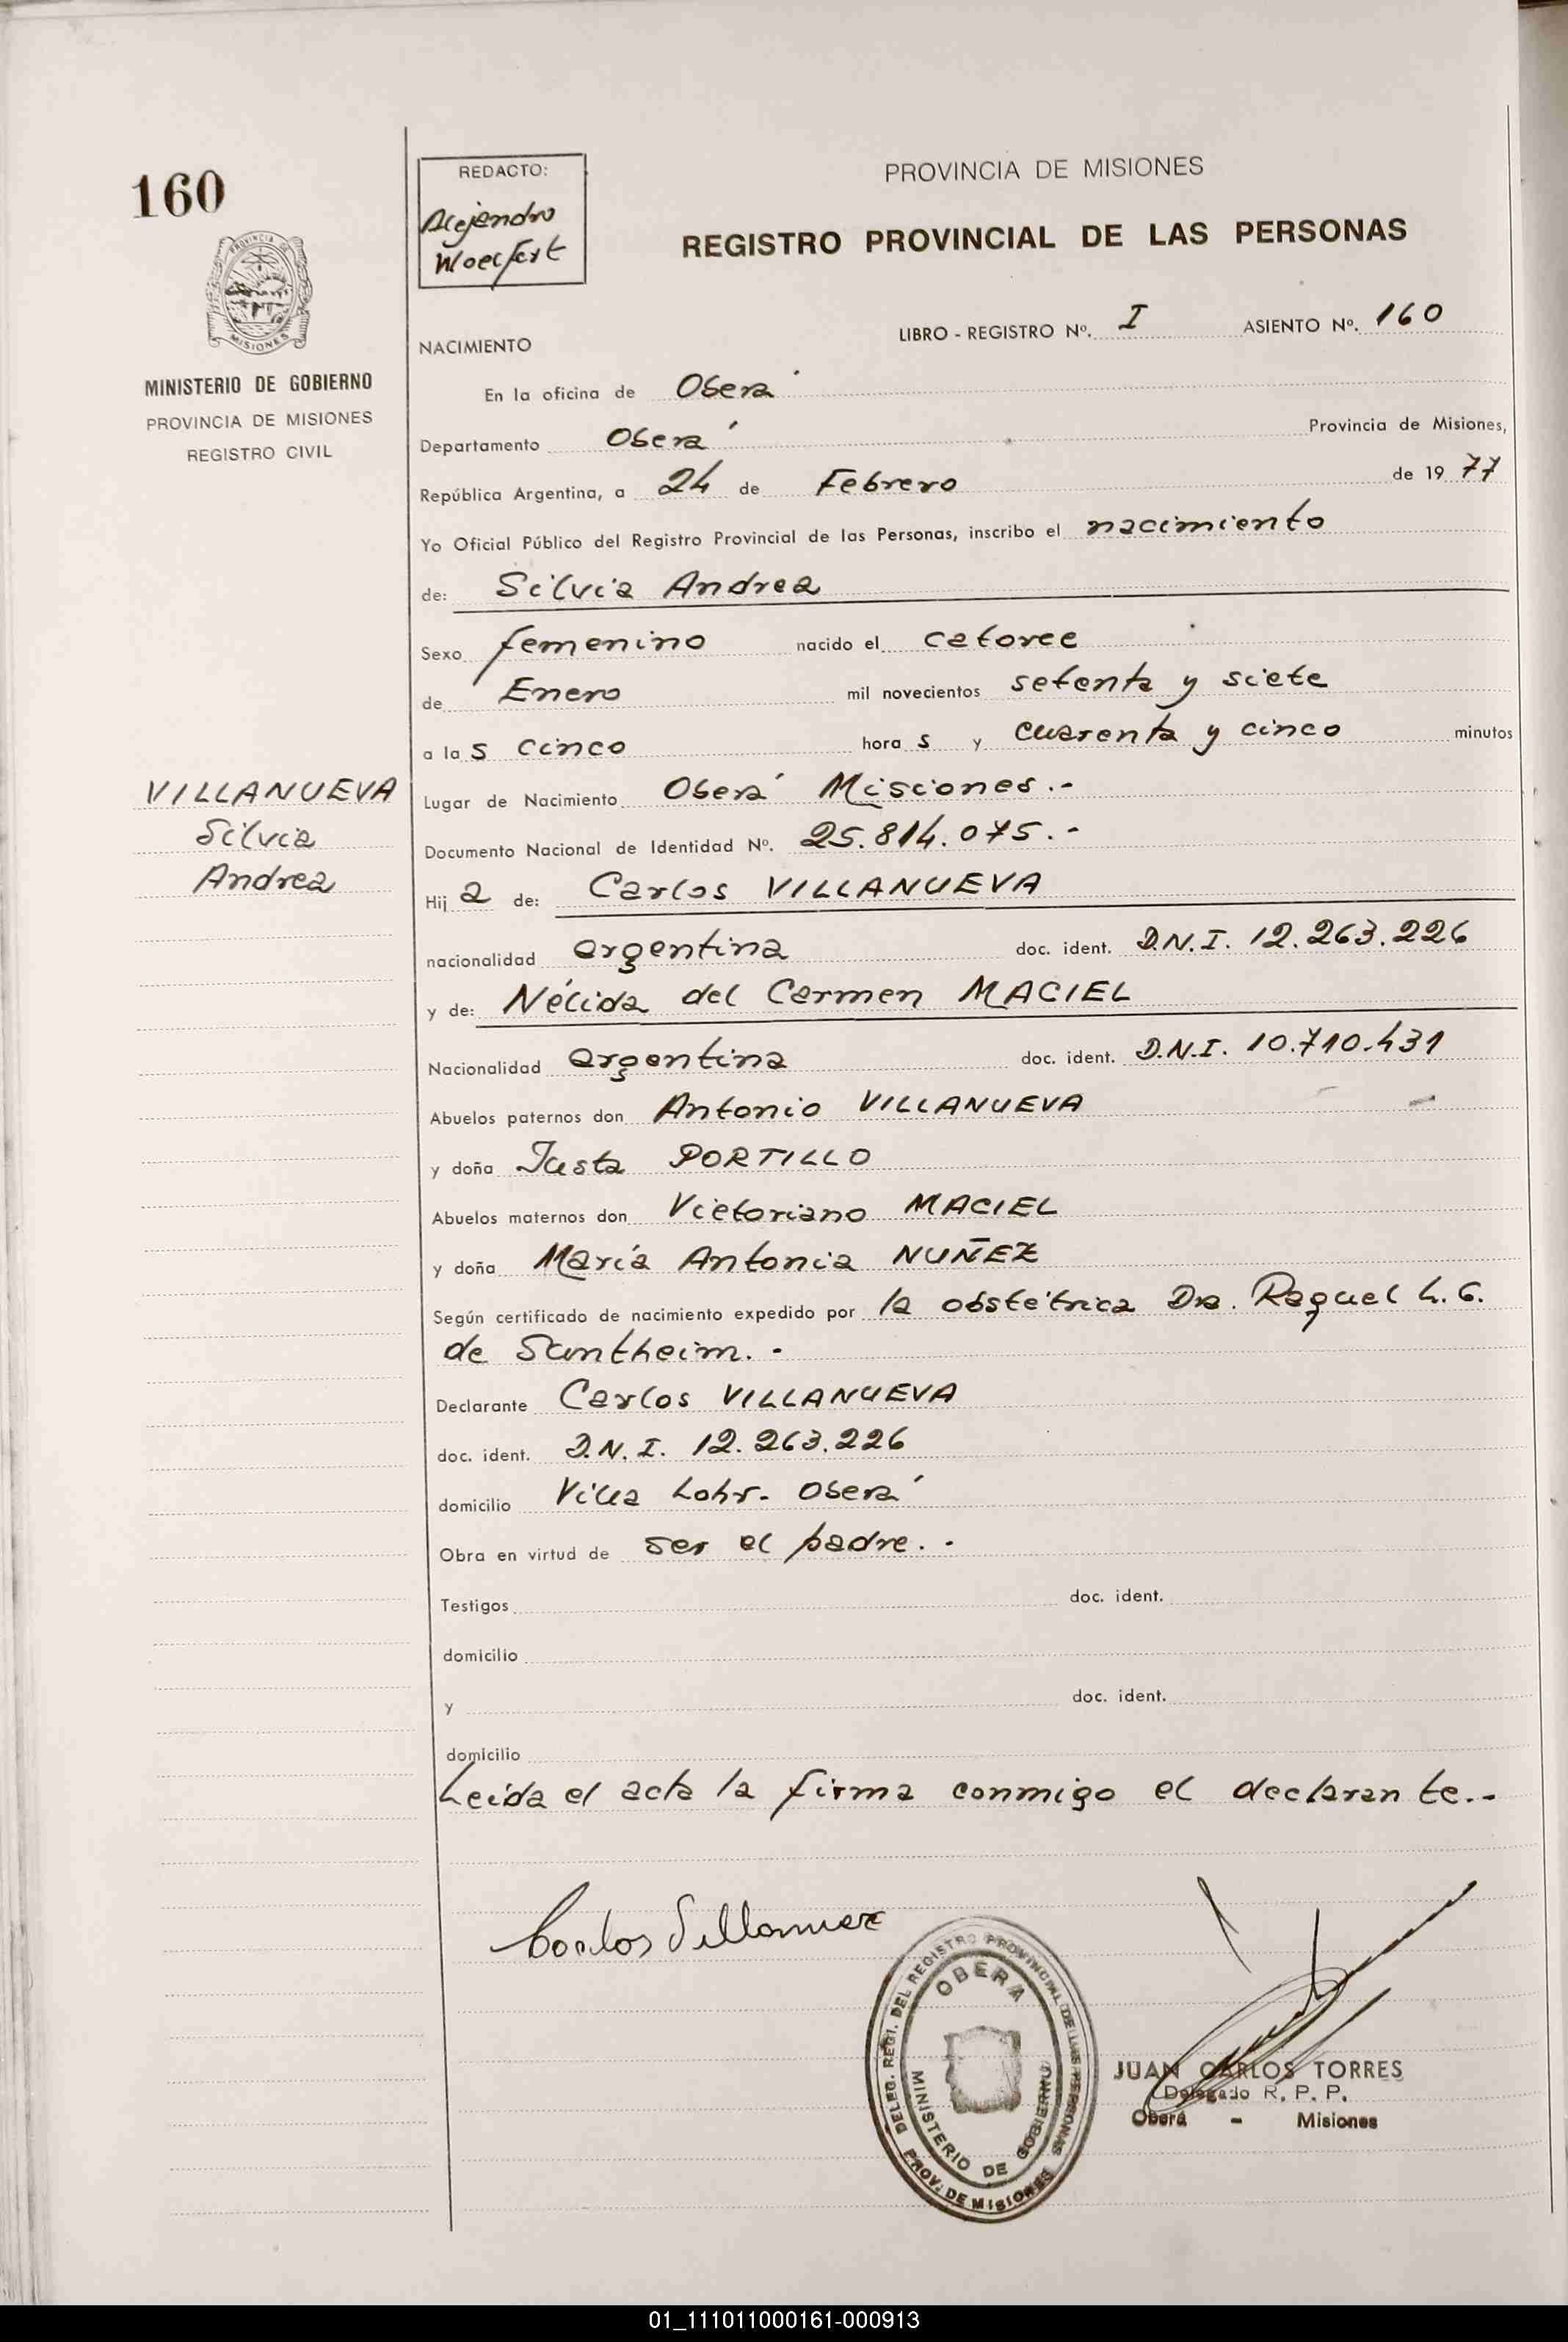 160
PROVINCIA DE MISIONES
MINISTERIO DE GOBIERNO
PROVINCIA DE MISIONES
REGISTRO CIVIL
VILLANUEVA
Silvia
Andrea
REDACTO:
Alejandro
PROVINCIA DE MISIONES
REGISTRO PROVINCIAL DE LAS PERSONAS
LIBRO - REGISTRO Nº. I ASIENTO Nº. 160
NACIMIENTO
En la oficina de Oberá
Departamento Oberá Provincia de Misiones,
República Argentina, a 24 de Febrero de 1977
Yo Oficial Público del Registro Provincial de las Personas, inscribo el nacimiento
de: Silvia Andrea
Sexo femenino nacido el catorce
de Enero mil novecientos setenta y siete
a las cinco horas y cuarenta y cinco minutos
Lugar de Nacimiento Oberá Misiones.-
Documento Nacional de Identidad Nº. 25.814.075.-
Hija de: Carlos VILLANUEVA
nacionalidad argentina doc. ident. D.N.I. 12.263.226
y de: Nélida del Carmen MACIEL
Nacionalidad argentina doc. ident. D.N.I. 10.710.431
Abuelos paternos don Antonio VILLANUEVA
y doña Justa PORTILLO
Abuelos maternos don Victoriano MACIEL
y doña María Antonia NUÑEZ
Según certificado de nacimiento expedido por la obstétrica Dra. Raquel L. G.
de Suntheim.-
Declarante Carlos VILLANUEVA
doc. ident. D.N.I. 12.263.226
domicilio Villa Lohr- Oberá
Obra en virtud de ser el padre.-
Testigos doc. ident.
domicilio
y doc. ident.
domicilio
Leída el acta la firma conmigo el declarante.-
Carlos Villanueva
DELEG. REGI. DEL REGISTRO PROVINCIAL DE LAS PERSONAS
OBERA
MINISTERIO DE GOBIERNO
PROV. DE MISIONES
JUAN CARLOS TORRES
Delegado R. P. P.
Oberá - Misiones
01_111011000161-000913